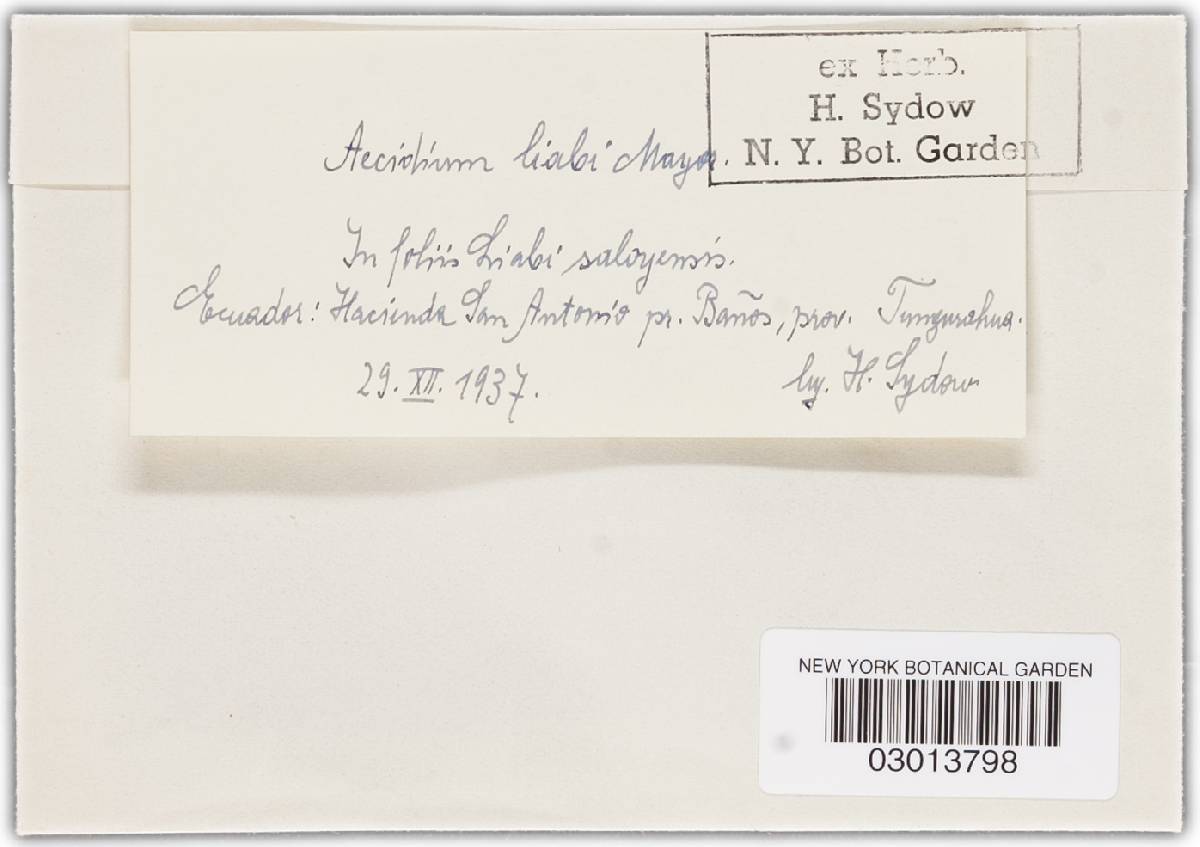 ex Herb.
H. Sydow
N. Y. Bot. Garden
Aecidium liabi Mayor.
In foliis Liabi saloyensis.
Ecuador: Hacienda San Antonio pr. Baños, prov. Tungurahua.
29. XII. 1937.
lg. H. Sydow
NEW YORK BOTANICAL GARDEN
03013798